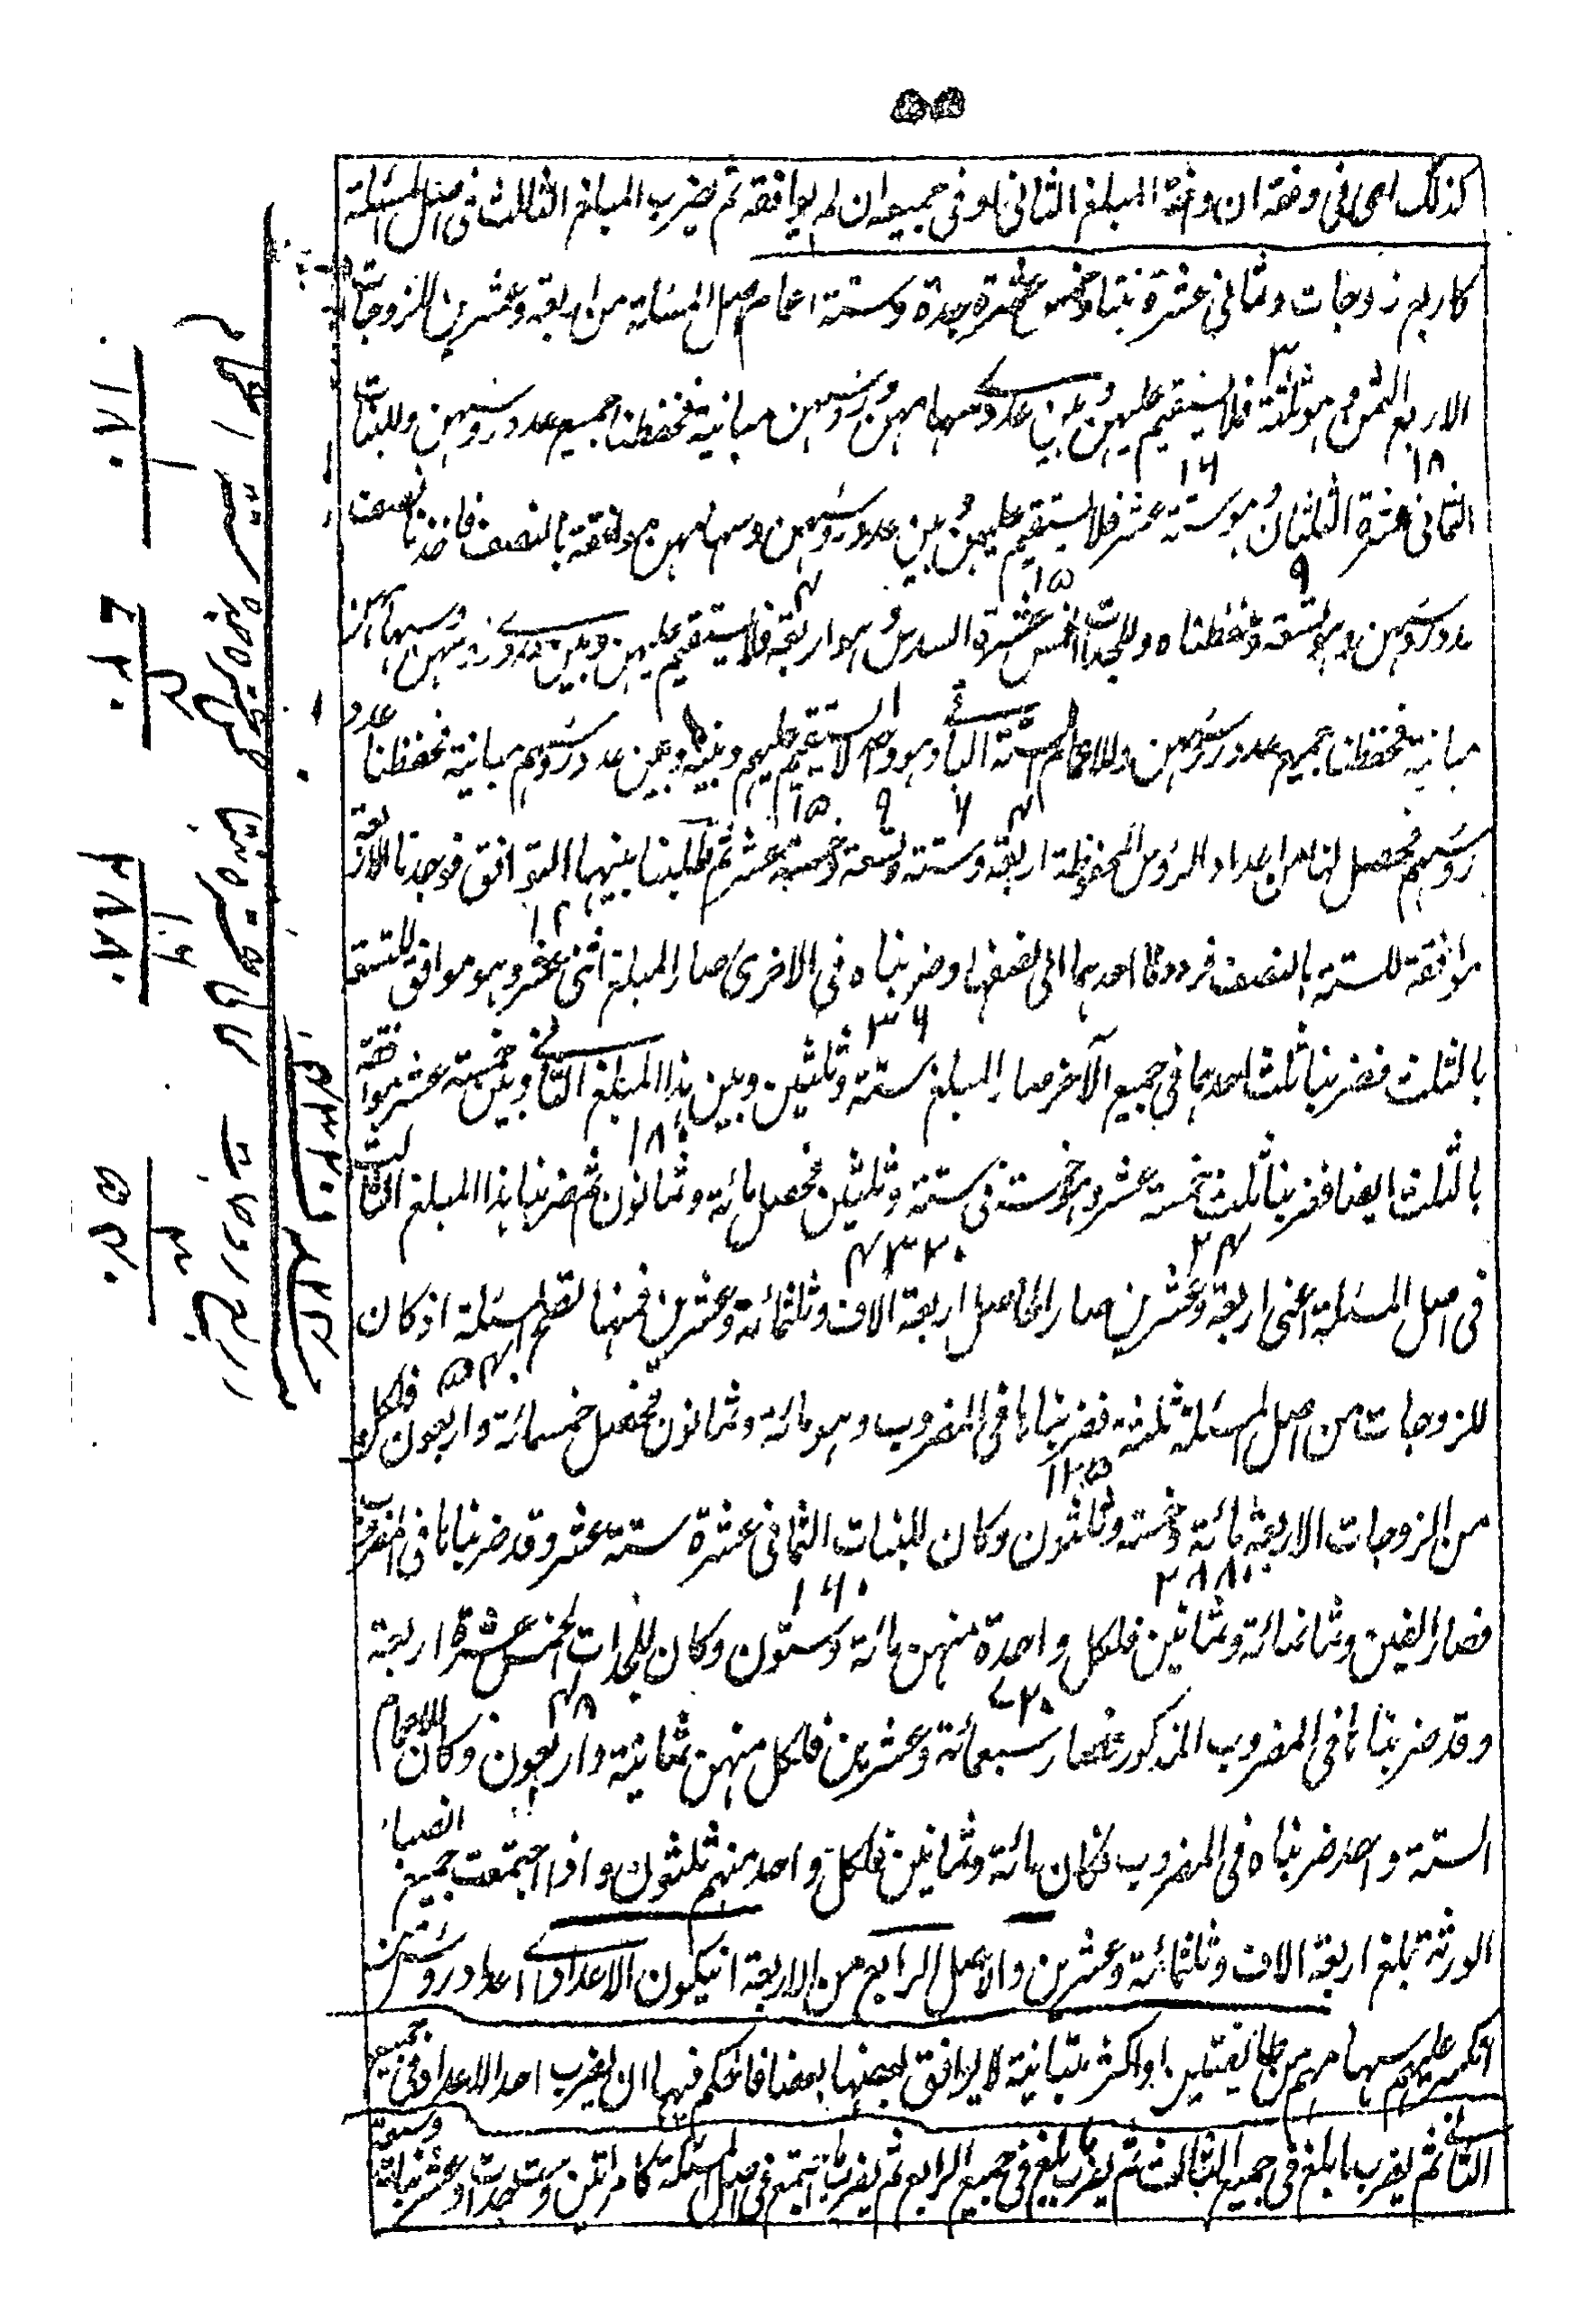 ٥٥
كذلك اى فى وفقه ان وافق المبلغ الثانى او فى جميعه ان لم يوافقه ثم يضرب المبلغ الثالث فى اصل المسئلة
كاربع زوجات وثمانى عشرة بنتا وخمس عشرة جدة وستة اعمام اصل المسئلة من اربعة وعشرين للزوجات
الاربع الثمن وهو ثلثة فلا يستقيم عليهن وبين عدد سهامهن ورؤسهن مباينة فحفظنا جميع عدد رؤسهن وللبنات
٣
الثمانى عشرة الثلثان وهو ستة عشر فلا يستقيم عليهن وبين عدد رؤسهن وسهامهن موافقة بالنصف فاخذنا نصف
١٨ ١٦
عدد رؤسهن وهو تسعة وحفظناه وللجدات الخمس عشرة السدس وهو اربعة فلا يستقيم عليهن وبين عدد رؤسهن وسهامهن
٩ ١٥ ٤
مباينة فحفظنا جميع عدد رؤسهن وللاعمام الستة الباقى وهو واحد لا يستقيم عليهم وبينه وبين عدد رؤسهم مباينة فحفظنا عدد
رؤسهم فحصل لنا من اعداد الرؤس المحفوظة اربعة وستة وتسعة وخمسة عشر ثم طلبنا بينها التوافق فوجدنا الاربعة
٤ ٦ ٩ ١٥
موافقة للستة بالنصف فرددنا احدهما الى نصفها وضربناه فى الاخرى صار المبلغ اثنى عشر وهو موافق للتسعة
١٢
بالثلث فضربنا ثلث احدهما فى جميع الآخر صار المبلغ ستة وثلثين وبين هذا المبلغ الثانى وبين خمسة عشر موافقة
٣٦
بالثلث ايضا فضربنا ثلث خمسة عشر وهو خمسة فى ستة وثلثين فحصل مائة وثمانون ثم ضربنا هذا المبلغ الثالث
١٨٠
فى اصل المسئلة اعنى اربعة وعشرين صار الحاصل اربعة الاف وثلثمائة وعشرين فمنها تصح المسئلة اذ كان
٢٤ ٤٣٢٠
للزوجات من اصل المسئلة ثلثة فضربناها فى المضروب وهو مائة وثمانون فحصل خمسمائة واربعون فلكل
٥٤٠
من الزوجات الاربعة مائة وخمسة وثلثون وكان للبنات الثمانى عشرة ستة عشر وقد ضربناها فى المضروب
١٣٥
فصار الفين وثمانمائة وثمانين فلكل واحدة منهن مائة وستون وكان للجدات الخمس عشرة اربعة
٢٨٨٠ ١٦٠
وقد ضربناها فى المضروب المذكور فصار سبعمائة وعشرين فلكل منهن ثمانية واربعون وكان للاعمام
٧٢٠ ٤٨
الستة واحد ضربناه فى المضروب فكان مائة وثمانين فلكل واحد منهم ثلثون واذا اجتمعت جميع انصباء
الورثة تبلغ اربعة الاف وثلثمائة وعشرين والاصل الرابع من الاربعة ان يكون الاعداد اى اعداد رؤس من
انكسر عليهم سهامهم من طائفتين او اكثر متباينة لا يوافق بعضها بعضا فالحكم فيها ان يضرب احد الاعداد فى جميع
الثانى ثم يضرب ما بلغ فى جميع الثالث ثم يضرب ما بلغ فى جميع الرابع ثم يضرب ما اجتمع فى اصل المسئلة كامرأتين وست جدات وعشر بنات وسبعة